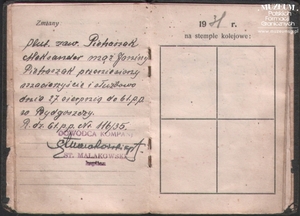 Zmiany
plut. zaw. Pietrzak
Aleksander mąż Janiny
Pietrzak przeniesiony
służbowo
dnia 17 sierpnia do 61.p.p.
w Bydgoszczy.
R. dz. 61.p.p. Nr 116/35.
DOWÓDCA KOMPANII
ST. MALAKOWSKI
kapitan
19 r.
na stemple kolejowe:
MUZEUM
Polskich
Formacji
Granicznych